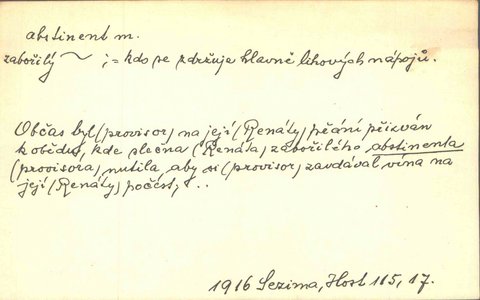 abstinent m.
zabořilý ~ ; = kdo se zdržuje hlavně lihových nápojů.
Občas byl (provisor) na její (Renáty) přání přizván
k obědu, kde slečna (Renáta) zabořilého abstinenta
(provisora) nutila, aby si (provisor) zavdával vína na
její (Renáty) počest, . .
1916 Sezima, Host 115, 17.